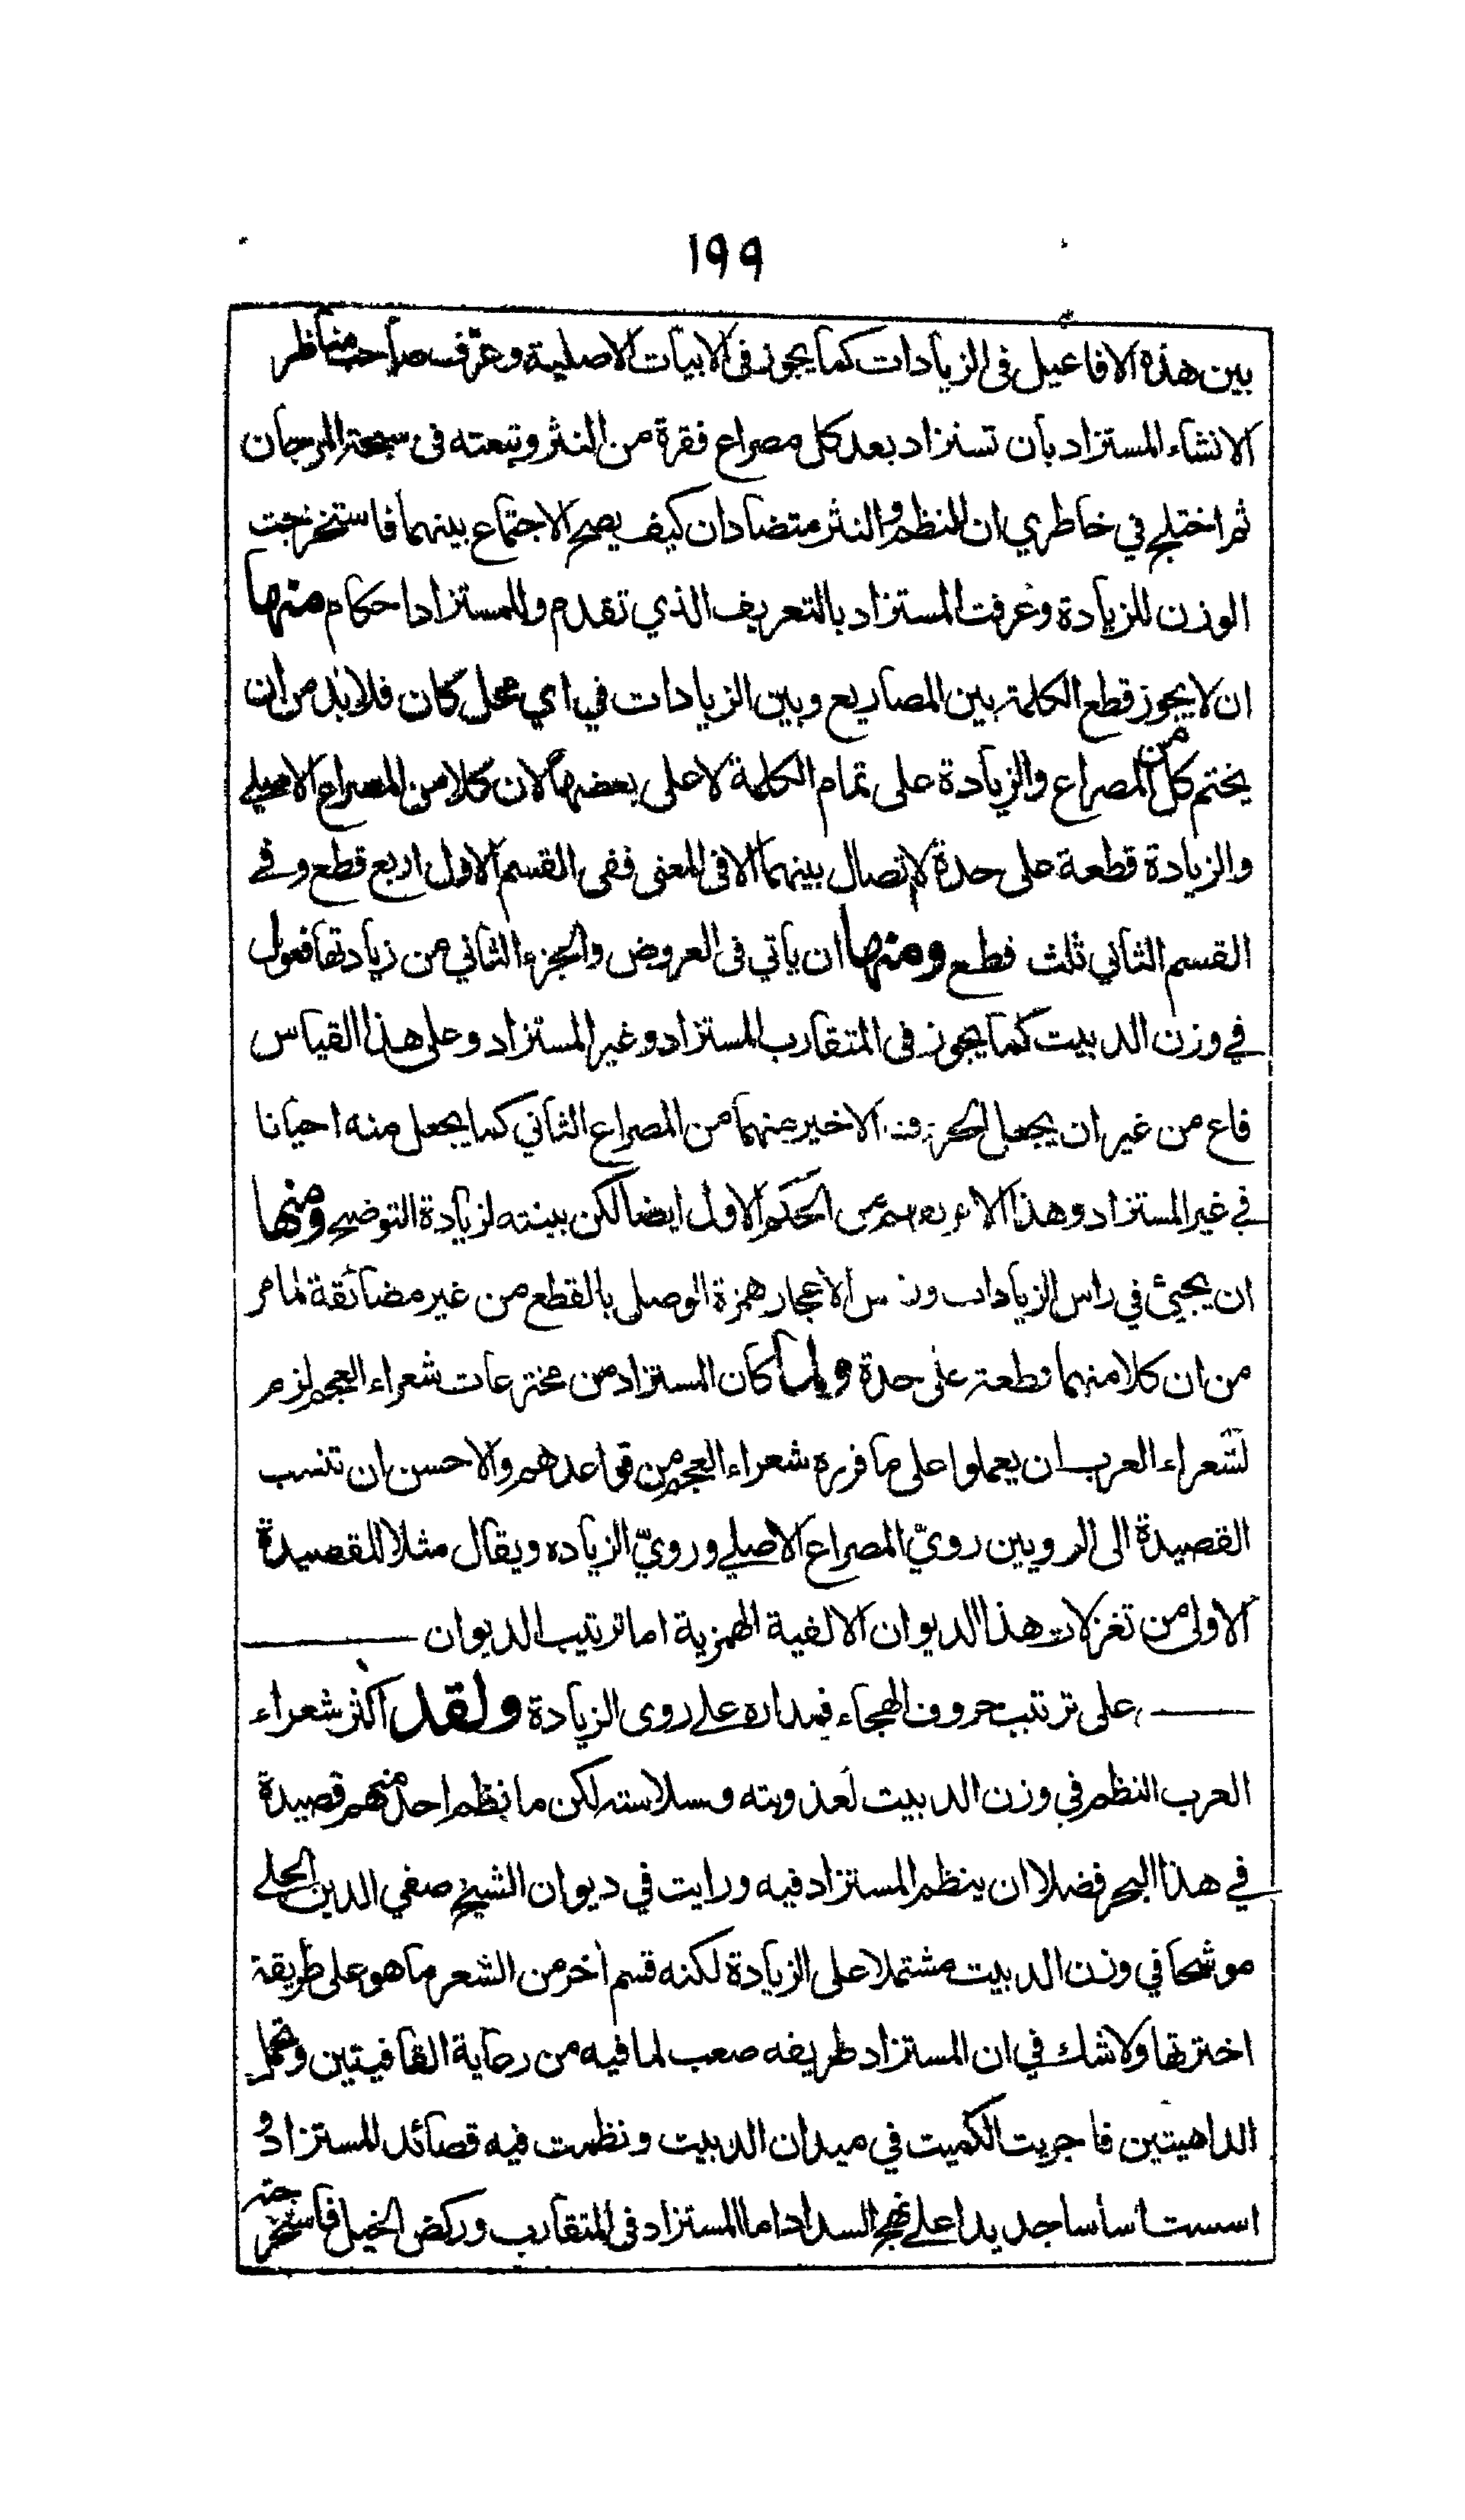 ١٩٩
بين هذه الافاعيل فى الزيادات كما يجوز فى الابيات الاصلية وعرّف صاحب مناظر
الانشاء المستزاد بان تستزاد بعد كل مصراع فقرة من النثر وتبعته فى سبحة المرجان
ثم اختلج في خاطري ان النظم والنثر متضادان كيف يصح الاجتماع بينهما فاستخرجت
الوزن للزيادة وعرفت المستزاد بالتعريف الذي تقدم وللمستزاد احكام منها
ان لا يجوز قطع الكلمة بين المصاريع وبين الزيادات في اي محل كان فلا بد من ان
يختم كل من المصراع والزيادة على تمام الكلمة لا على بعضها لان كلا من المصراع الاصيلے
والزيادة قطعة على حدة لا اتصال بينهما الا فى المعنى ففى القسم الاول اربع قطع وفے
القسم الثاني ثلث قطع ومنها ان ياتي فى العروض والجزء الثاني من زيادتها فعول
في وزن الدبيت كما يجوز فى المتقارب المستزاد وغير المستزاد وعلى هذا القياس
فاع من غير ان يجعل الحرف الاخير منهما من المصراع الثاني كما يجعل منه احيانا
في غير المستزاد وهذا الامر من الحكم الاول ايضا لكن بينته لزيادة التوضيح ومنها
ان يجيئ في راس الزيادات الاعجاز همزة الوصل بالقطع من غير مضائقة لما مر
من ان كلا منهما قطعة على حدة ولما كان المستزاد من مخترعات شعراء العجم لزم
لشعراء العرب ان يعملوا على ما قرره شعراء العجم من قواعدهم والاحسن ان تنسب
القصيدة الى الرويين رويّ المصراع الاصلے ورويّ الزياده ويقال مثلا للقصيدة
الاولى من تغزلات هذا الديوان الالفية الهمزية اما ترتيب الديوان
على ترتيب حروف الهجاء فمداره علے روى الزيادة ولقد اكثر شعراء
العرب النظم في وزن الدبيت لعذوبته وسلاسته لكن ما نظم احد منهم قصيدة
في هذا البحر فضلا ان ينظم المستزاد فيه ورايت في ديوان الشيخ صفي الدين الحلے
موشحا في وزن الدبيت مشتملا على الزيادة لكنه قسم اخر من الشعر ما هو على طريقة
اخترتها ولا شك في ان المستزاد طريقه صعب لما فيه من رعاية القافيتين وتحمل
الداهيتين فاجريت الكميت في ميدان الدبيت ونظمت فيه قصائد للمستزاد و
اسست اساسا جديدا علے نهج السداد اما المستزاد فى المتقارب وركض الخيل فاستخرجته